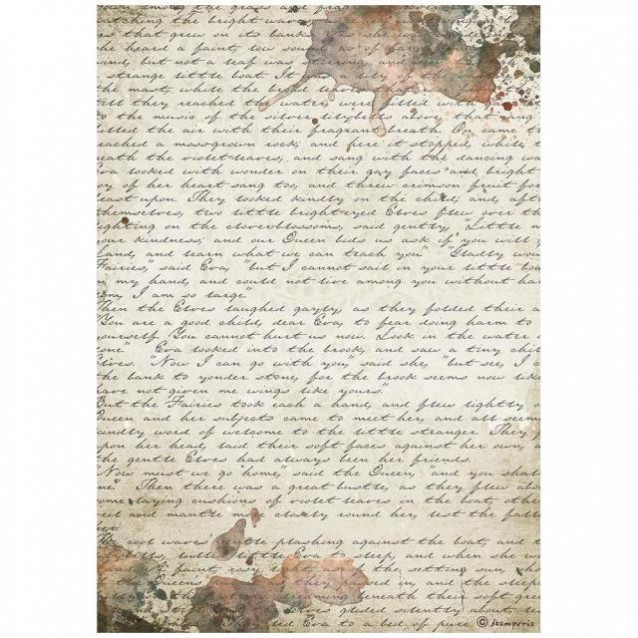 watching the bright waves
s that grew on its bank
she heard a faint, low sound, as of far
wind, but not a leaf was
strange little boat. It
the mast, while the
till they reached the water, were filled with
to the music of the silver
filled the air with their fragrant breath. On came
reached a moss-grown rock; and here it stopped, while
eath the violet-leaves, and sang with the dancing wa
Eva looked with wonder on their gay faces and bright
oy of her heart sang too, and threw crimson fruit for
east upon. They looked kindly on the child, and, afte
themselves, two little bright-eyed Elves flew over th
ighting on the clover-blossoms, said gently, "Little m
your kindness; and our Queen bids us ask if you will
Land, and learn what we can teach you." "Gladly wou
Fairies," said Eva, "but I cannot sail in your little boa
my hand, and could not live among you without har
I am so large."
Then the Elves laughed gayly, as they folded their a
"You are a good child, dear Eva, to fear doing harm to
yourself. You cannot hurt us now. Look in the water
one." Eva looked into the brook, and saw a tiny chil
Elves. "Now I can go with you," said she, "but see, I c
the bank to yonder stone, for the brook seems now like
have not given me wings like yours."
But the Fairies took each a hand, and flew lightly
Queen and her subjects came to meet her, and all seeme
kindly word of welcome to the little stranger. They p
upon her head, laid their soft faces against her own,
the gentle Elves had always been her friends.
"Now must we go home," said the Queen, "and you shal
one." Then there was a great bustle, as they flew abo
ome laying cushions of violet leaves in the boat, othe
veil and mantle more closely round her, lest the falli
cool waves' plashing against the boat, and the
lulled little Eva to sleep, and when she wo
A faint, rosy light,
the Queen
dreaming beneath their soft
Elves glided silently
Eva to a bed of pure
© stamperia